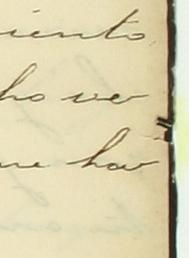 iento
ho ve
ue hav